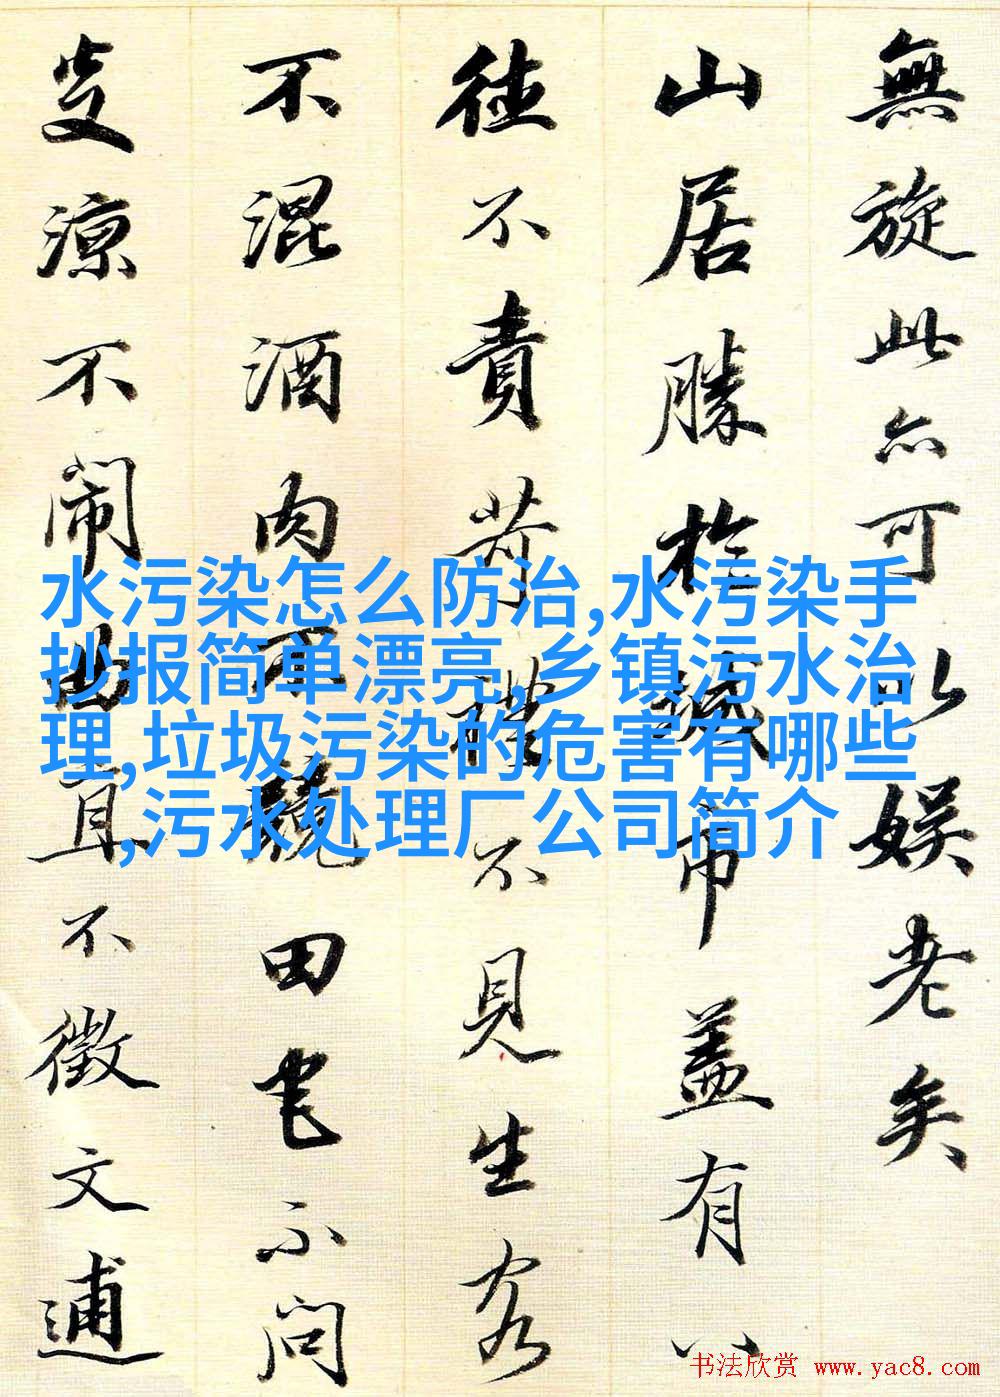 無旋此亦可以娱老矣
山居勝於城市蓋有八
德不責苛禮不見生客
不混酒肉不競田宅不问
炎凉不闹曲直不徵文逋
水污染怎么防治,水污染手
抄报简单漂亮,乡镇污水治
理,垃圾污染的危害有哪些
,污水处理厂公司简介
书法欣赏 www.yac8.com